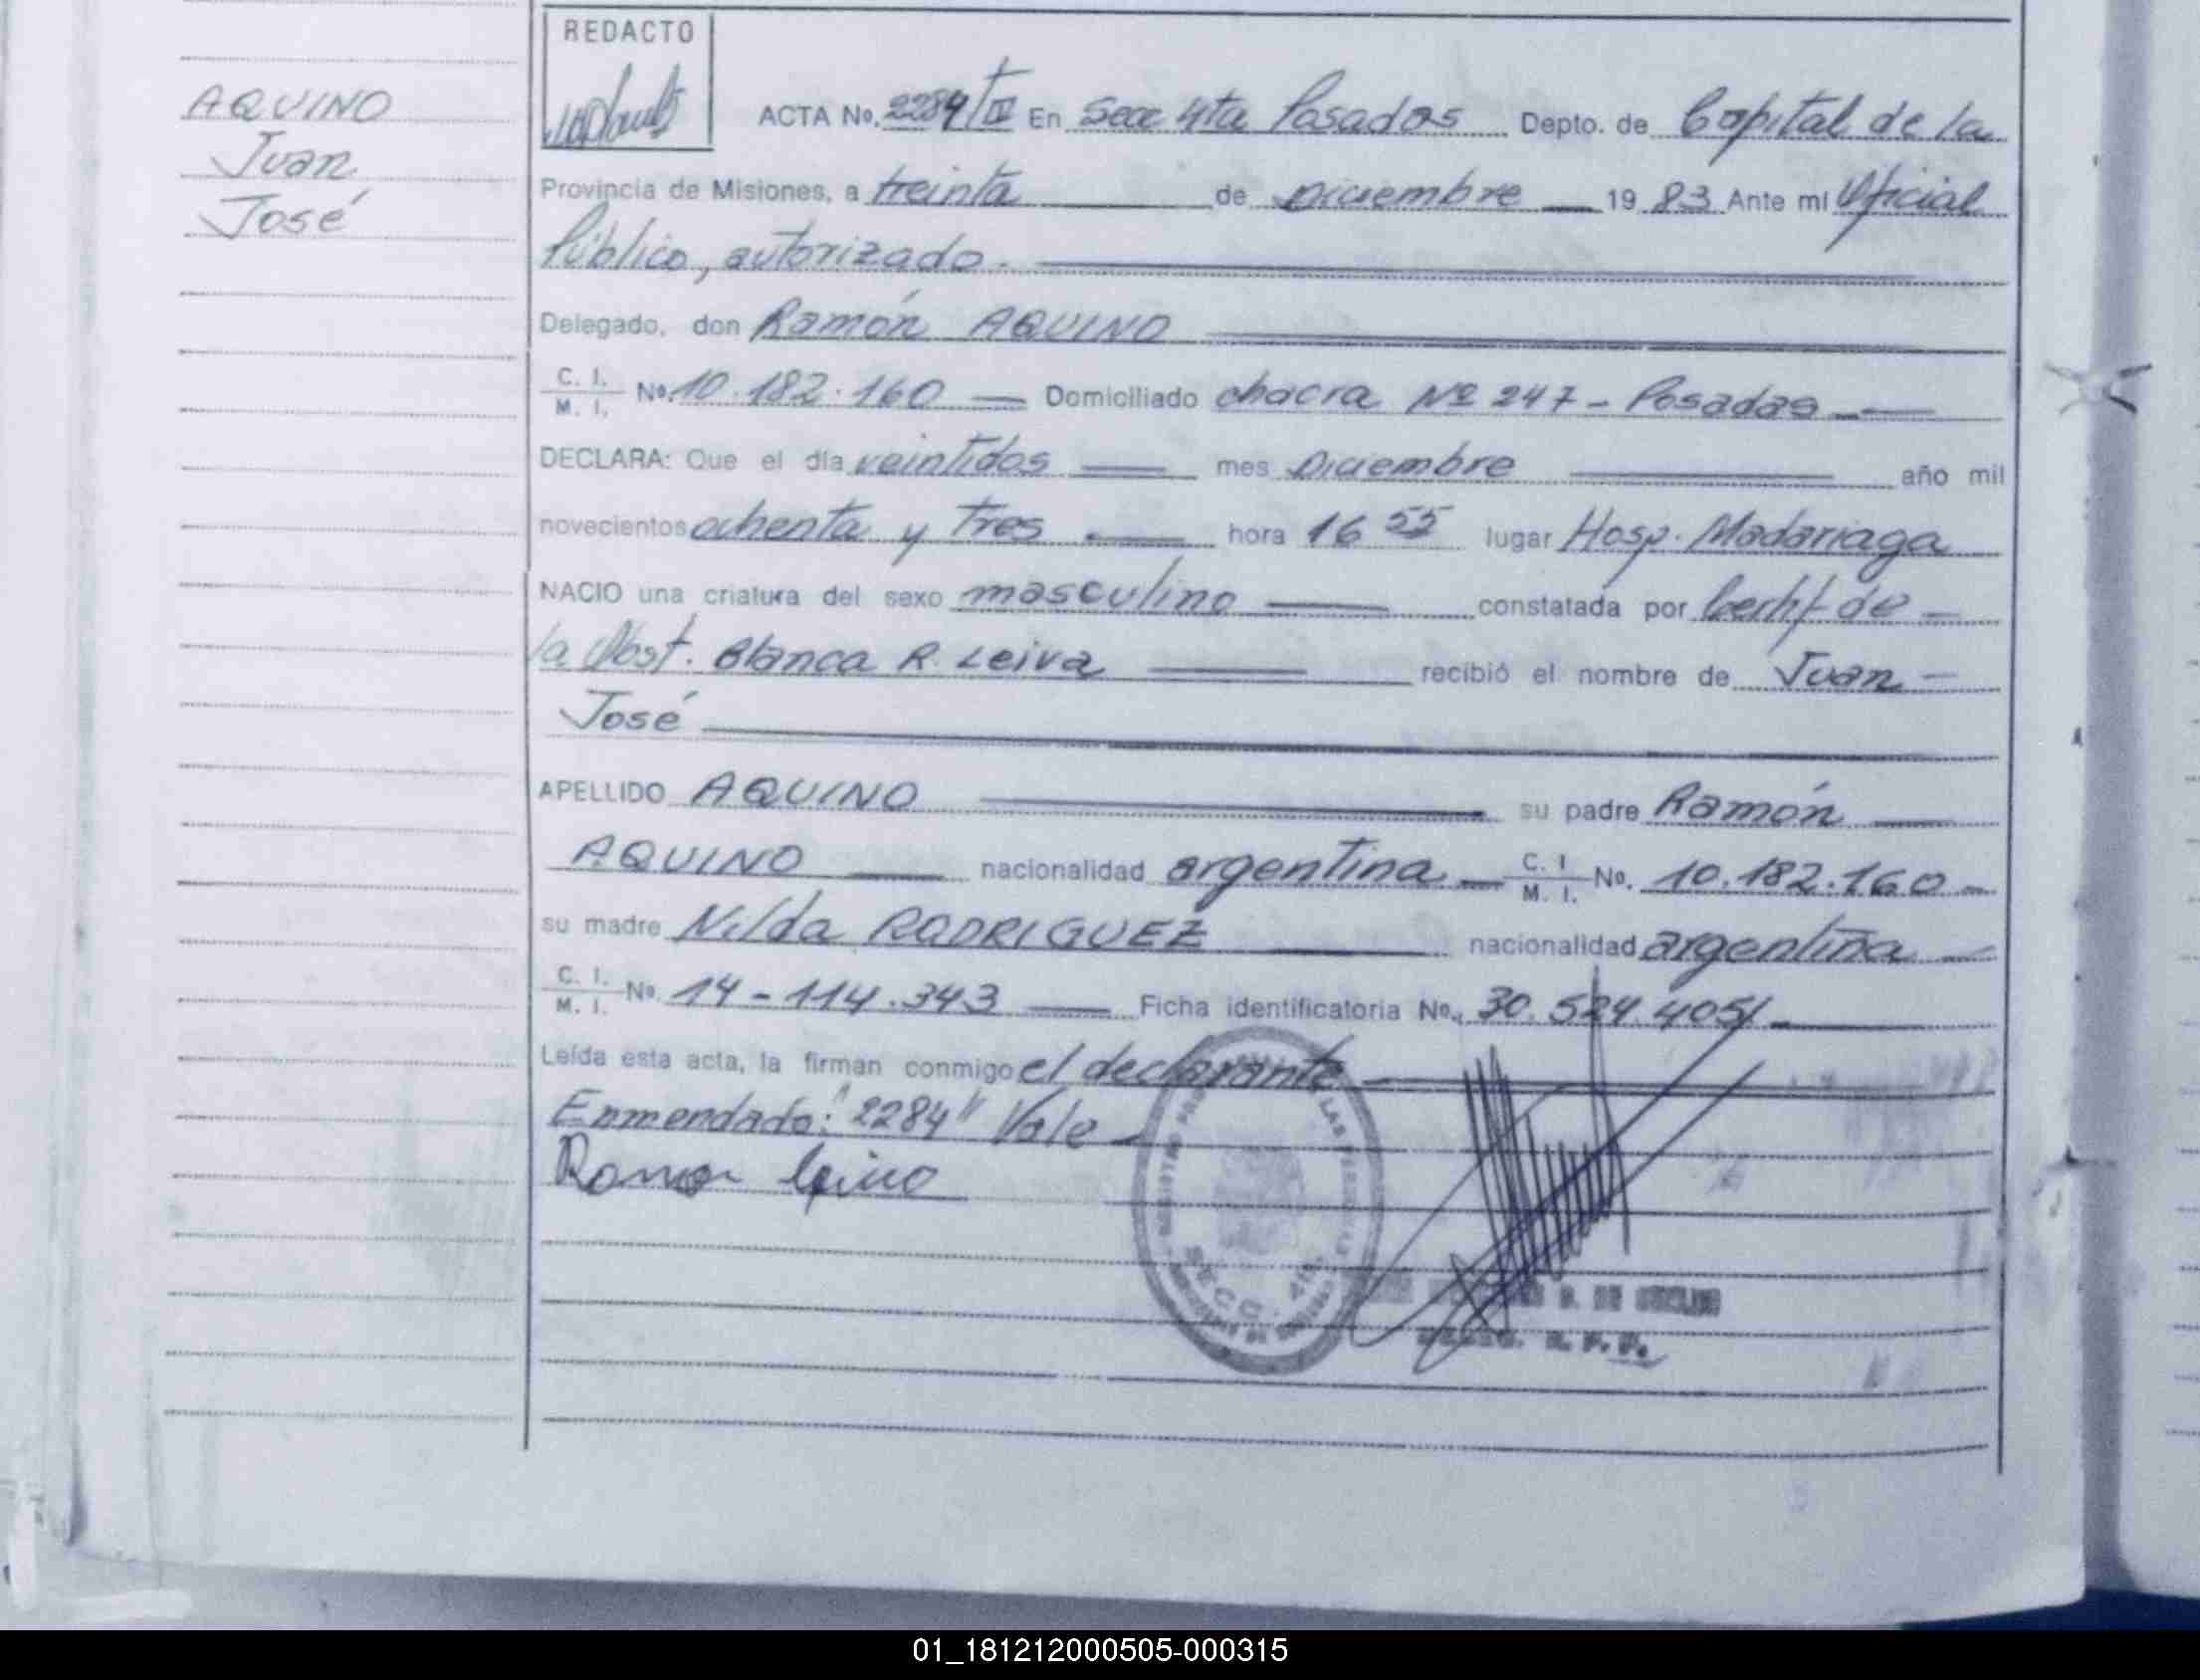 AQUINO
Juan
José
REDACTO
ACTA No. 2284/IV En Secc 4ta Posadas Depto. de Capital de la
Provincia de Misiones, a treinta de Diciembre 19 83 Ante mi Oficial
Público, autorizado.
Delegado, don Ramón AQUINO
C. I.
M. I. No. 10.182.160 Domiciliado chacra Nº 247 - Posadas
DECLARA: Que el día veintidos mes Diciembre año mil
novecientos ochenta y tres hora 16 55 lugar Hosp. Madariaga
NACIO una criatura del sexo masculino constatada por Certif de
la Obst. Blanca R. Leiva recibió el nombre de Juan
José
APELLIDO AQUINO su padre Ramón
AQUINO nacionalidad argentina C. I. M. I. No. 10.182.160
su madre Nilda RODRIGUEZ nacionalidad argentina
C. I.
M. I. No. 14-114.343 Ficha identificatoria No. 30.524.405/
Leída esta acta, la firman conmigo el declarante
Enmendado: "2284" Vale
Ramon Aquino
SECC. 4ta.
01_181212000505-000315